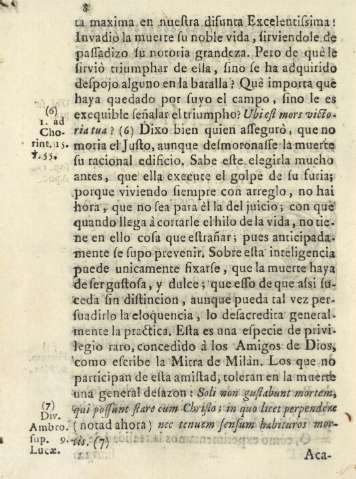 8
ta maxima en nuestra difunta Excelentissima!
Invadiò la muerte su noble vida, sirviendole de
passadizo su notoria grandeza. Pero de què le
sirviò triumphar de ella, sino se ha adquirido
despojo alguno en la batalla? Què importa que
haya quedado por suyo el campo, sino le es
exequible señalar el triumpho? Ubi est mors victo-
ria tua? (6) Dixo bien quien assegurò, que no
moria el Justo, aunque desmoronasse la muerte
su racional edificio. Sabe este elegirla mucho
antes, que ella execute el golpe de su furia;
porque viviendo siempre con arreglo, no hai
hora, que no sea para èl la del juicio; con que
quando llega à cortarle el hilo de la vida, no tie-
ne en ello cosa que estrañar; pues anticipada-
mente se supo prevenir. Sobre esta inteligencia
puede unicamente fixarse, que la muerte haya
de ser gustosa, y dulce; que esso de que assi su-
ceda sin distincion, aunque pueda tal vez per-
suadirlo la eloquencia, lo desacredita general-
mente la practica. Esta es una especie de privi-
legio raro, concedido à los Amigos de Dios,
como escribe la Mitra de Milàn. Los que no
participan de esta amistad, toleran en la muerte
una general desazon: Soli non gustabunt mortem,
qui possunt stare cum Christo: in quo licet perpendere
(notad ahora) nec tenuem sensum habituros mor-
tis. (7)
Aca-
(6)
1. ad
Cho-
rint. 15.
℣. 55.
(7)
Div.
Ambro.
sup. 9.
Lucæ.